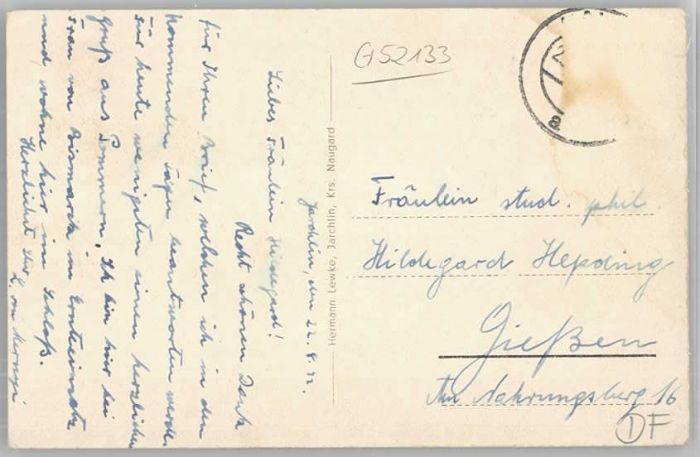 Jarchlin, den 22.8.42.
Liebes Fräulein Hildegard!
Recht schönen Dank
für Ihren Brief, welchen ich in den
kommenden Tagen beantworten werde.
Für heute wenigsten einen herzlichen
Gruß aus Pommern. Ich bin hier bei
Frau von Bismarck im Ernteeinsatz
und wohne hier im Schloß.
Herzlichst Ihr
Hermann Lewke, Jarchlin, Krs. Naugard
G52133
a
Fräulein stud. phil.
Hildegard Hepding
Gießen
Am Nahrungsberg 16
DF